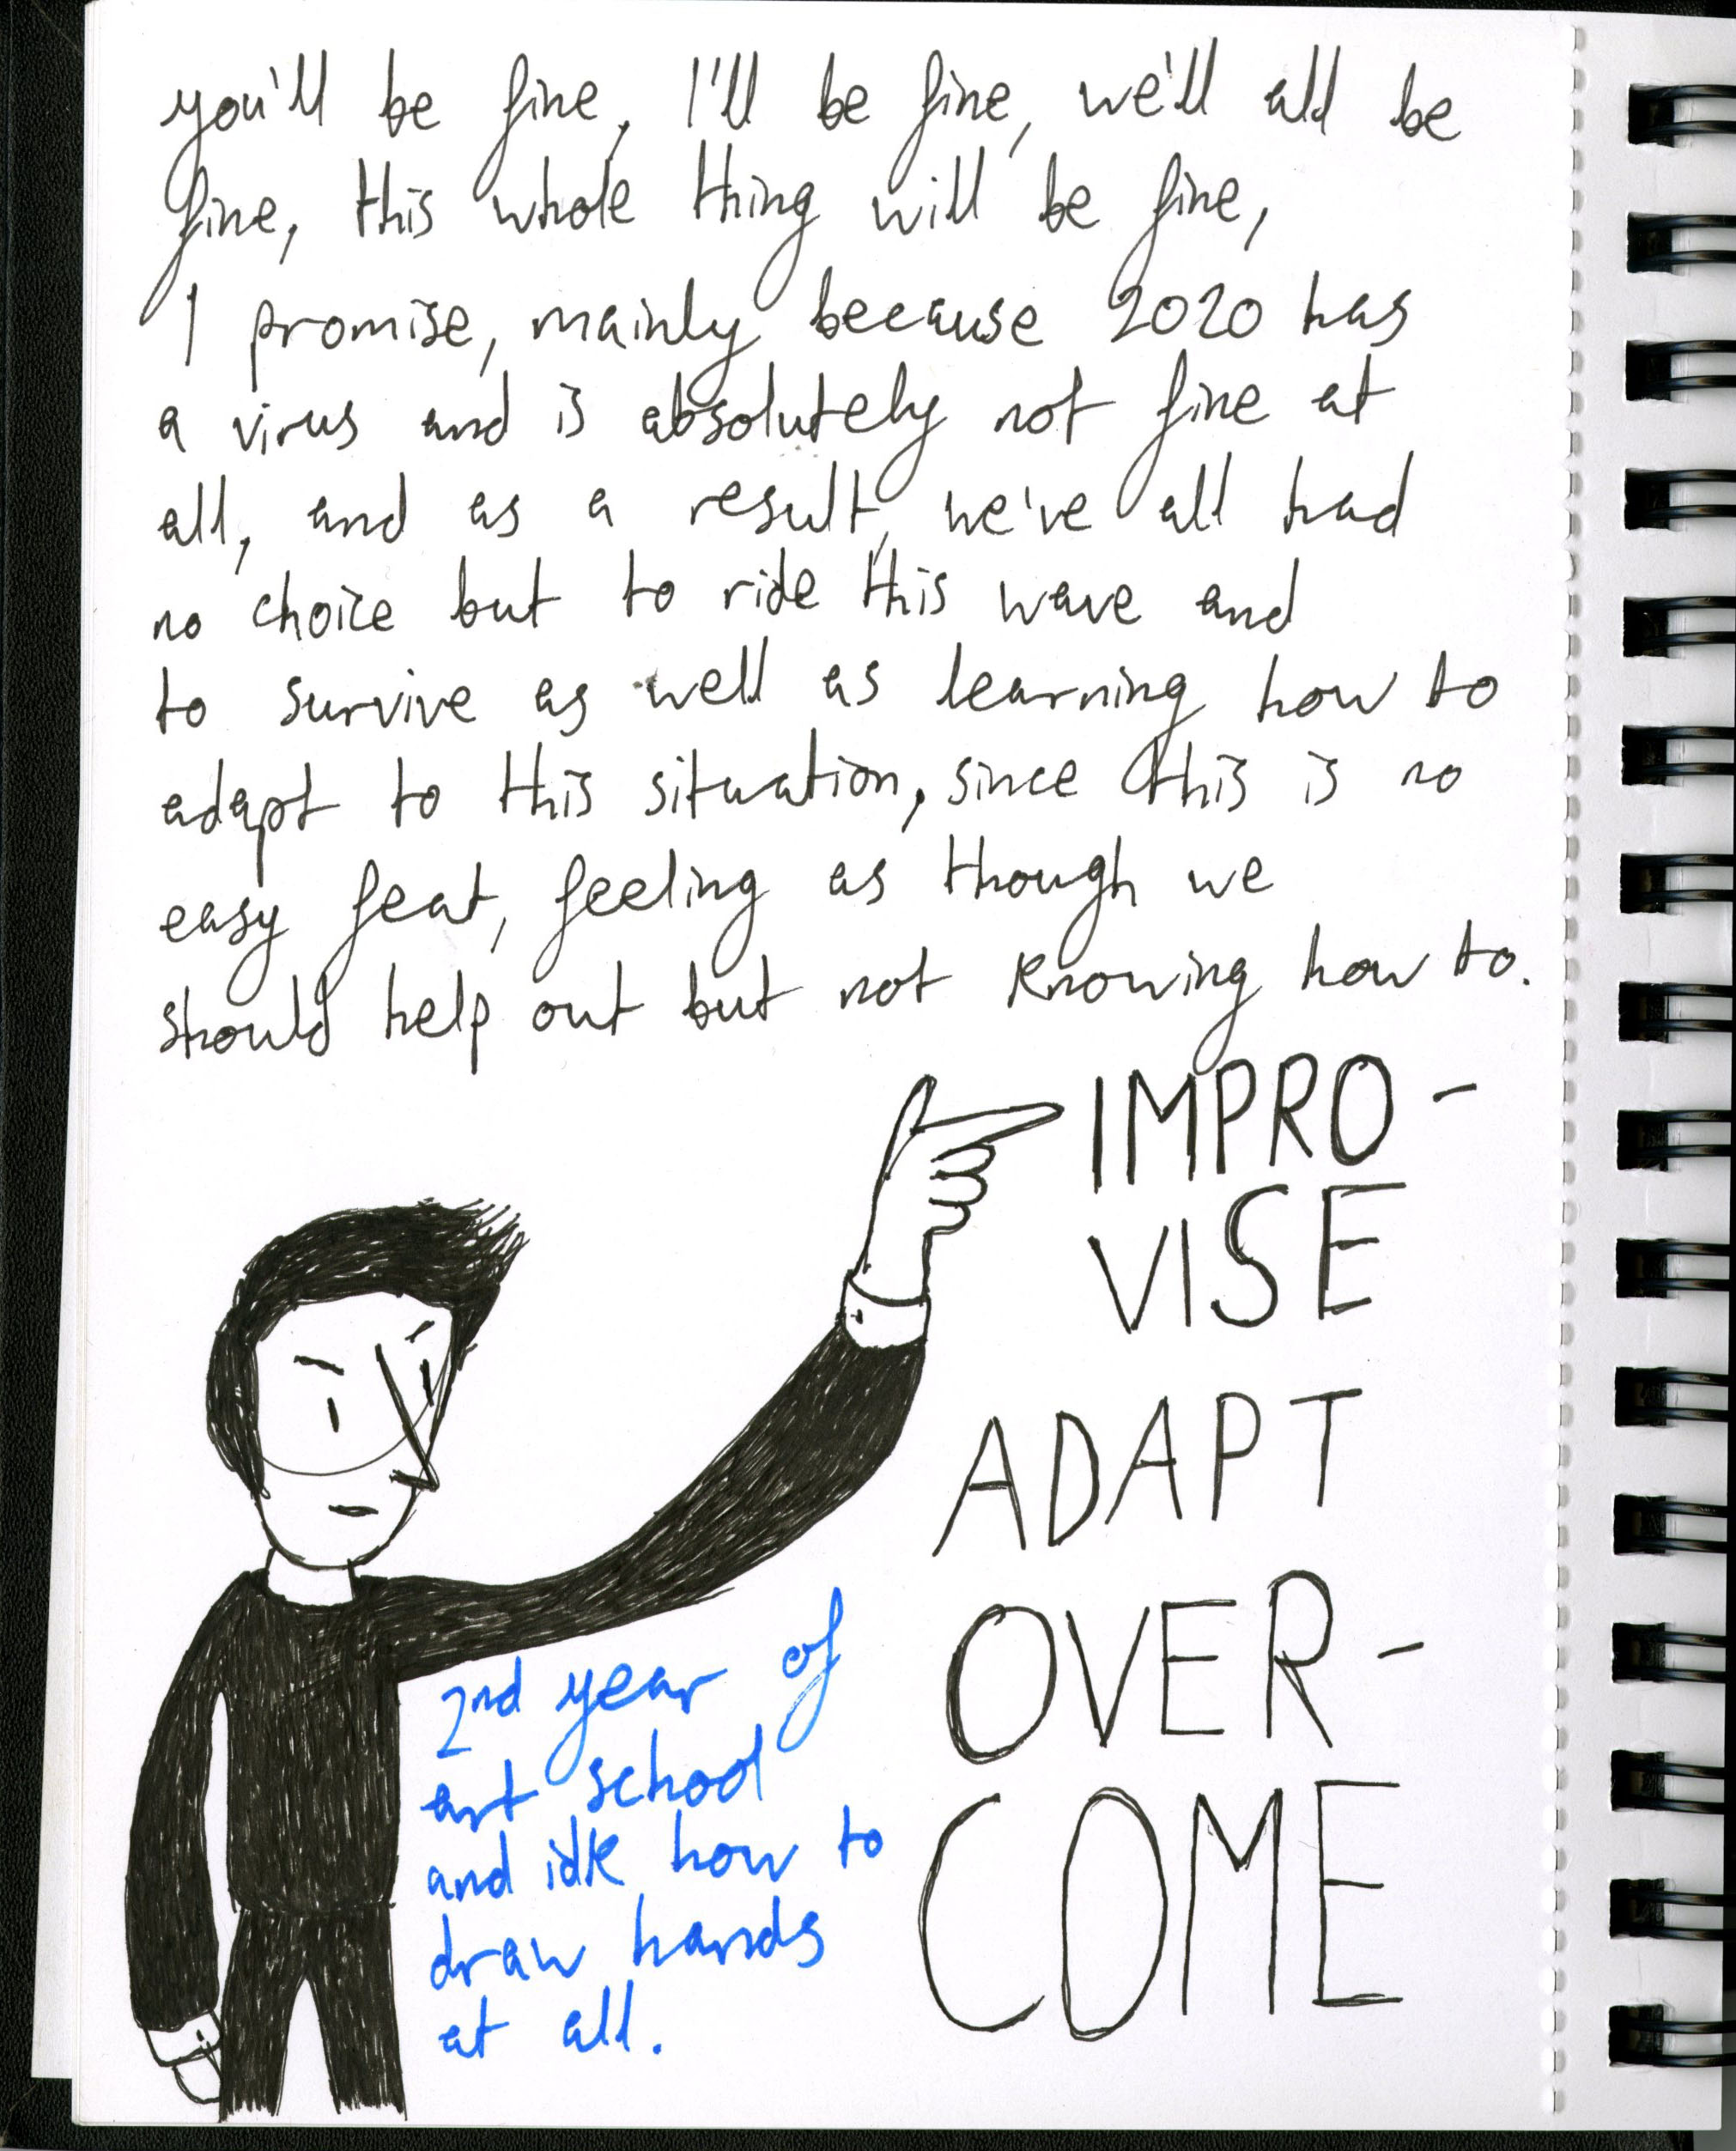 you'll be fine, I'll be fine, we'll all be
fine, this whole thing will be fine,
I promise, mainly because 2020 has
a virus and is absolutely not fine at
all, and as a result, we've all had
no choice but to ride this wave and
to survive as well as learning how to
adapt to this situation, since this is no
easy feat, feeling as though we
should help out but not knowing how to.
IMPRO-
VISE
ADAPT
OVER-
COME
2nd year of
art school
and idk how to
draw hands
at all.